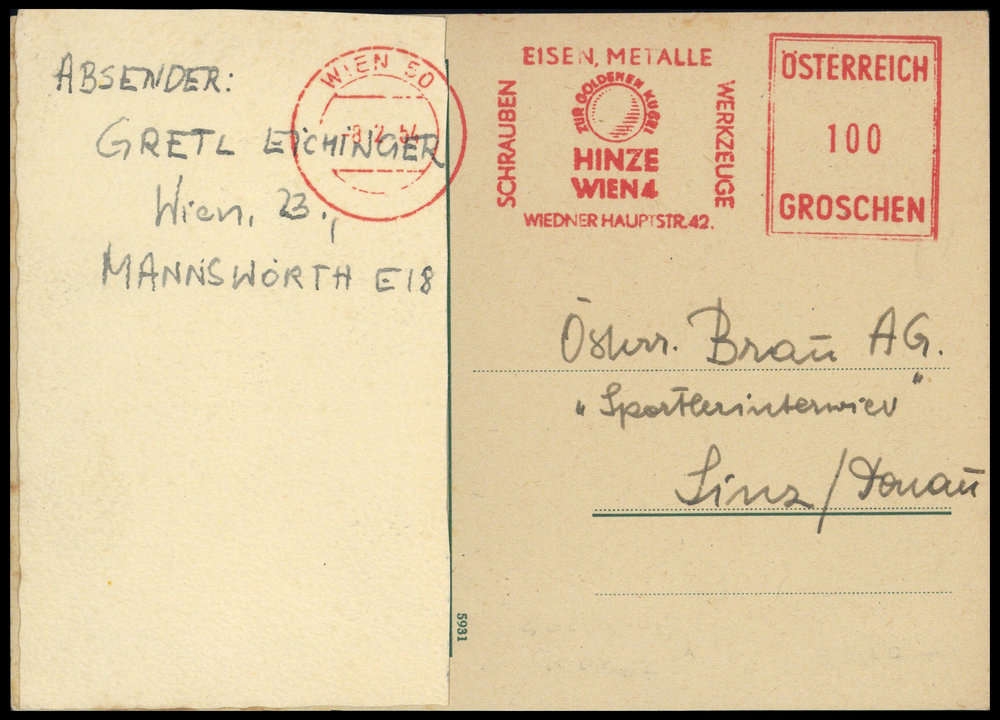 ABSENDER:
GRETL EICHINGER
Wien, 23.,
MANNSWÖRTH E18
WIEN 50
8.2.54
EISEN, METALLE
SCHRAUBEN
ZUR GOLDENEN KUGEL
WERKZEUGE
HINZE
WIEN 4
WIEDNER HAUPTSTR. 42.
ÖSTERREICH
100
GROSCHEN
Österr. Brau AG.
"Sportlerinterwiev"
Linz/Donau
5931